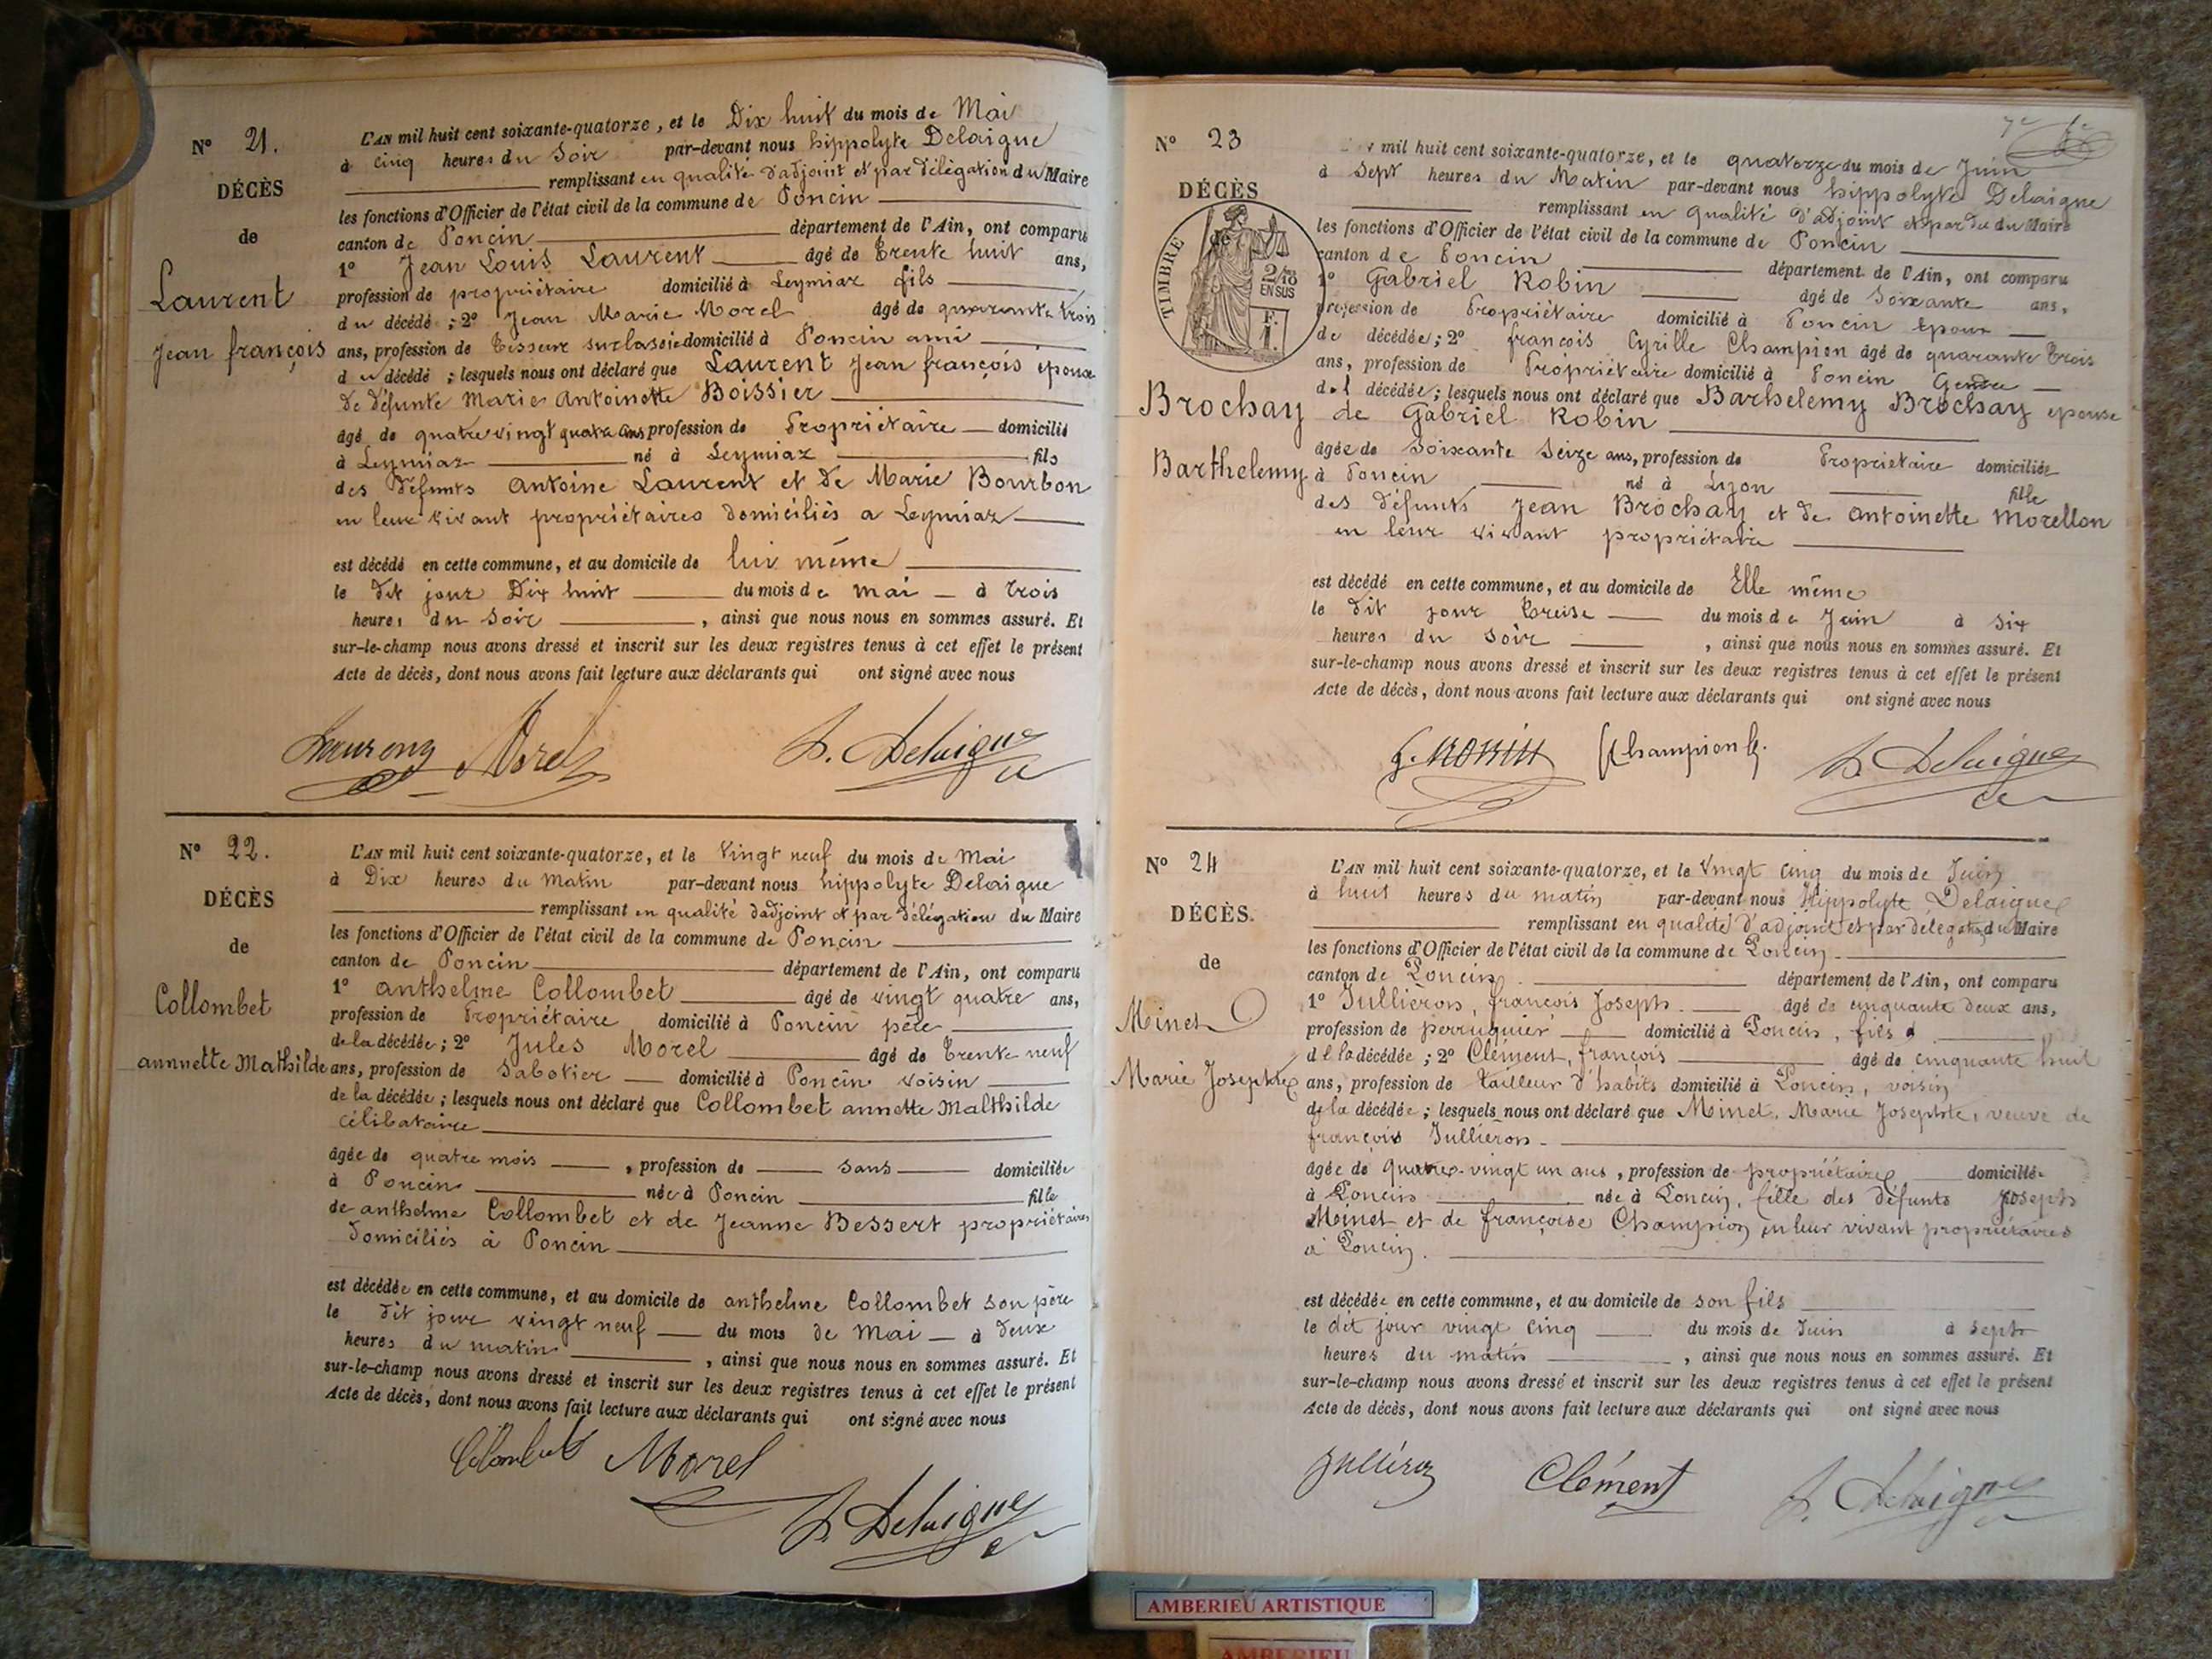 Nº 21.
DÉCÈS
de
Laurent
Jean françois
L'AN mil huit cent soixante-quatorze, et le Dix huit du mois de Mai
à cinq heures du Soir par-devant nous hippolyte Delaigue
remplissant en qualité d'adjoint et par délégation du Maire
les fonctions d'Officier de l'état civil de la commune de Poncin
canton de Poncin département de l'Ain, ont comparu
1º Jean Louis Laurent âgé de Trente huit ans,
profession de propriétaire domicilié à Leymiaz fils
du décédé ; 2º Jean Marie Morel âgé de quarante trois
ans, profession de Tisseur sur la soie domicilié à Poncin ami
du décédé ; lesquels nous ont déclaré que Laurent Jean françois époux
de défunte Marie Antoinette Boissier
âgé de quatre vingt quatre ans profession de Propriétaire domicilié
à Leymiaz né à Leymiaz fils
des défunts Antoine Laurent et de Marie Bourbon
en leur vivant propriétaires domiciliés a Leymiaz
est décédé en cette commune, et au domicile de lui même
le dit jour Dix huit du mois de mai à trois
heures du Soir , ainsi que nous nous en sommes assuré. Et
sur-le-champ nous avons dressé et inscrit sur les deux registres tenus à cet effet le présent
Acte de décès, dont nous avons fait lecture aux déclarants qui ont signé avec nous
Laurent Morel h. Delaigue
Nº 22.
DÉCÈS
de
Collombet
annnette Mathilde
L'AN mil huit cent soixante-quatorze, et le Vingt neuf du mois de Mai
à Dix heures du Matin par-devant nous hippolyte Delaigue
remplissant en qualité d'adjoint et par délégation du Maire
les fonctions d'Officier de l'état civil de la commune de Poncin
canton de Poncin département de l'Ain, ont comparu
1º anthelme Collombet âgé de vingt quatre ans,
profession de Propriétaire domicilié à Poncin père
de la décédée ; 2º Jules Morel âgé de Trente neuf
ans, profession de Sabotier domicilié à Poncin voisin
de la décédée ; lesquels nous ont déclaré que Collombet annette Malthilde
célibataire
âgée de quatre mois , profession de sans domiciliée
à Poncin née à Poncin fille
de anthelme Collombet et de Jeanne Bessert propriétaires
domiciliés à Poncin
est décédée en cette commune, et au domicile de anthelme Collombet son père
le dit jour vingt neuf du mois de Mai à deux
heures du matin , ainsi que nous nous en sommes assuré. Et
sur-le-champ nous avons dressé et inscrit sur les deux registres tenus à cet effet le présent
Acte de décès, dont nous avons fait lecture aux déclarants qui ont signé avec nous
Colombet Morel
h. Delaigue
Nº 23
DÉCÈS
de
TIMBRE
2/10
EN SUS
F.
1.
Brochay
Barthelemy
mil huit cent soixante-quatorze, et le quatorze du mois de Juin
à Sept heures du Matin par-devant nous hippolyte Delaigue
remplissant en qualité d'adjoint et par du Maire
les fonctions d'Officier de l'état civil de la commune de Poncin
canton de Poncin département de l'Ain, ont comparu
1º Gabriel Robin âgé de Soixante ans,
profession de Propriétaire domicilié à Poncin époux
de décédée ; 2º françois Cyrille Champion âgé de quarante trois
ans, profession de Propriétaire domicilié à Poncin Gendre
de l décédée ; lesquels nous ont déclaré que Barhelemy Brochay epouse
de Gabriel Robin
âgée de Soixante Seize ans, profession de Propriétaire domiciliée
à Poncin né à Lyon fille
des défunts Jean Brochay et de antoinette Morellon
en leur vivant propriétaire
est décédé en cette commune, et au domicile de Elle même
le dit jour treise du mois de Juin à Six
heures du Soir , ainsi que nous nous en sommes assuré. Et
sur-le-champ nous avons dressé et inscrit sur les deux registres tenus à cet effet le présent
Acte de décès, dont nous avons fait lecture aux déclarants qui ont signé avec nous
g. Robin Champion h. Delaigue
Nº 24
DÉCÈS.
de
Minet
Marie Josephte
L'AN mil huit cent soixante-quatorze, et le Vingt cinq du mois de Juin
à huit heures du matin par-devant nous Hippolyte Delaigue
remplissant en qualité d'adjoint et par délégation du Maire
les fonctions d'Officier de l'état civil de la commune de Poncin
canton de Poncin département de l'Ain, ont comparu
1º Jullièron, françois Joseph âgé de cinquante deux ans,
profession de perruquier domicilié à Poncin, fils
de la décédée ; 2º Clément, françois âgé de cinquante huit
ans, profession de tailleur d'habits domicilié à Poncin, voisin
de la décédée ; lesquels nous ont déclaré que Minet, Marie Josephte, veuve de
françois Jullièron
âgée de quatre-vingt un ans, profession de propriétaire domiciliée
à Poncin née à Poncin, fille des défunts Joseph
Minet et de françoise Champion en leur vivant propriétaires
à Poncin.
est décédée en cette commune, et au domicile de son fils
le dit jour vingt cinq du mois de Juin à sept
heures du matin , ainsi que nous nous en sommes assuré. Et
sur-le-champ nous avons dressé et inscrit sur les deux registres tenus à cet effet le présent
Acte de décès, dont nous avons fait lecture aux déclarants qui ont signé avec nous
Jullièron Clément h. Delaigue
AMBERIEU ARTISTIQUE
AMBERIEU